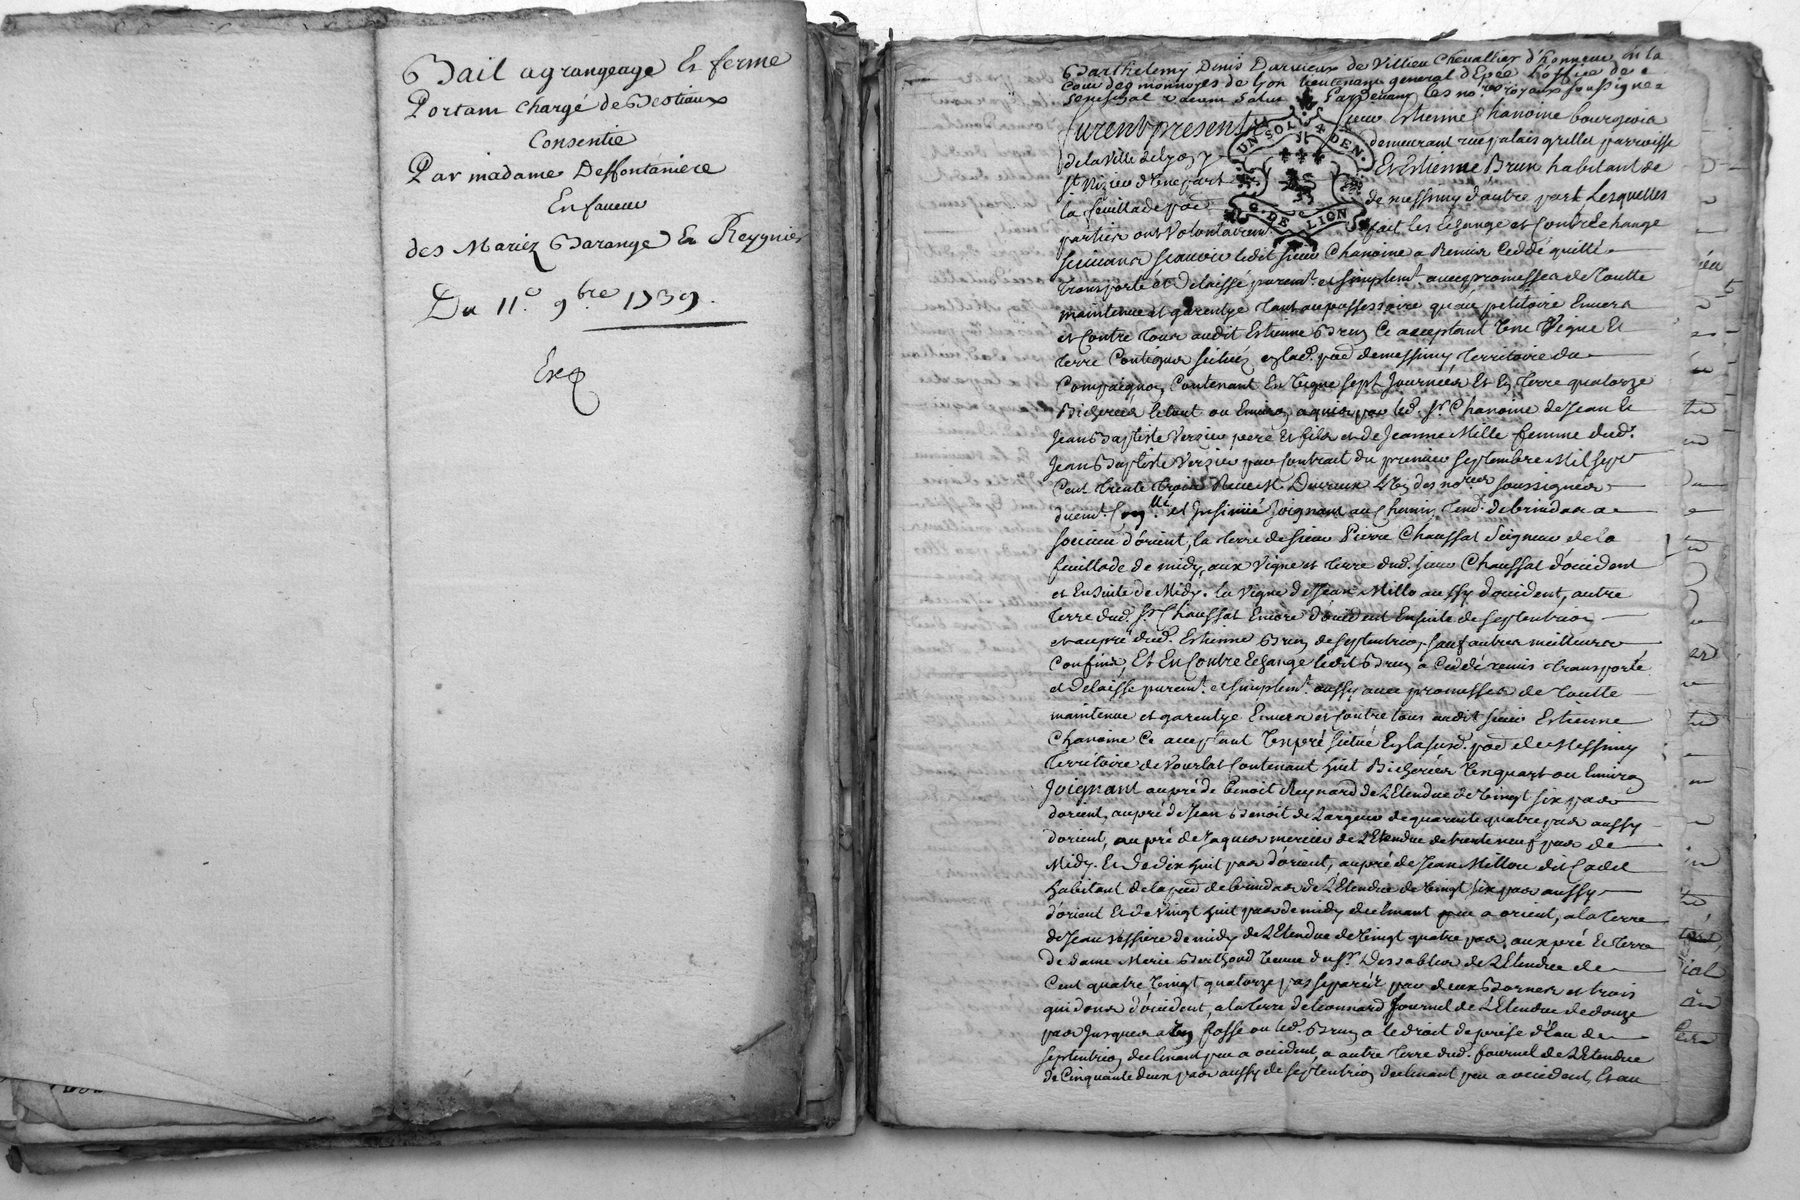 Bail agrangeage Et ferme
Portant chargé de Bestiaux
Consentie
Par madame Deffontaniere
En faveur
des Mariez Barange Et Reyynier
Du 11e 9bre 1739.
Exp
Barthelemy Denis Darnieux de Villieu Chevallier d'honneur En la
Cour des monnoyes de Lyon Lieutenant general d'Epée L'office de
Senechal vacant Salut Pardevant les nores royaux soussignez
furent present Sieur Estienne Chanoine bourgeois
UN SOL 4 DEN.
G. DE LION
de la Ville de Lyon y demeurant rue palais grillet parroisse
st Nizier d'une part Et Estienne Brun habitant de
la feuillade pad de messimy d'autre part Lesquelles
parties ont Volontairemt fait les Echange et Contre Echange
suivans scavoir ledit sieur Chanoine a Remis Ceddé quitté
transporté et delaissé puremt et simplemt avec promesses de toutte
maintenue et garentye tant au possessoire qu'au petitoire Envers
et Contre tous audit Estienne Brun Ce acceptant Une Vigne Et
terre Contigues situés en lad. pad de messimy territoire du
Compaignon Contenant En Vigne sept Journées Et En terre quatorze
Bicherées le tout ou Environ aquis par led. sr Chanoine de Jean Et
Jean Baptiste Verzieu pere Et fils et de Jeanne Mille femme dud.
Jean Baptiste Verzieu par Contrait du premier septembre Mil sept
Cent trente trois Receu Me Durieux L'un des nores soussignés
duemt Conllé et Insinüé Joignant au Chemin tendt de brindas a
Soucieu d'orient, la terre de sieur Pierre Chaussat Seigneur de la
feuillade de midy, aux Vigne et terre dud. sieur Chaussat d'occident
et Ensuite de Midy. la Vigne de Jean Millo aussy d'occident, autre
terre dud. sr Chaussat Encore d'occident Ensuite de septentrion
et au pré dud. Estienne Brun de septentrion sauf autres meilleurs
Confins, Et En Contre Echange ledit Brun a Ceddé remis transporté
et delaissé puremt et simplemt aussy avec promesses de toutte
maintenue et garentye Envers et Contre tous audit sieur Estienne
Chanoine Ce acceptant Un pré situé En la susd. pad de Messimy
territoire de Vourlat Contenant huit Bicherées Un quart ou Environ
Joignant au pré de Benoit Reynard de L'Etendue de Vingt six pas
d'orient, au pré de Jean Benoit de Largeur de quarante quatre pas aussy
d'orient, au pré de Jaques mercier de L'Etendue de trente neuf pas de
Midy. Et de dix huit pas d'orient, au pré de Jean Millou dit Cadet
habitant de la pad de brindas de L'Etendue de Vingt six pas aussy
d'orient Et de Vingt huit pas de midy declinant peu a orient, a la terre
de Jean Vissiere de midy de L'Etendue de Vingt quatre pas, aux pré Et terre
de dame Marie Berthoud Veuve du sr Dessablier de L'Etendue de
Cent quatre Vingt quatorze pas separéz par deux Bornes et trois
quidons d'occident, a la terre de Leonnard fournel de L'Etendue de douze
pas Jusques a Un fosse ou led. Brun a le droit de prise d'Eau de
septentrion declinant peu a occident, a autre terre dud. fournel de L'Etendue
de Cinquante deux pas aussy de septentrion declinant peu a occident, Et au